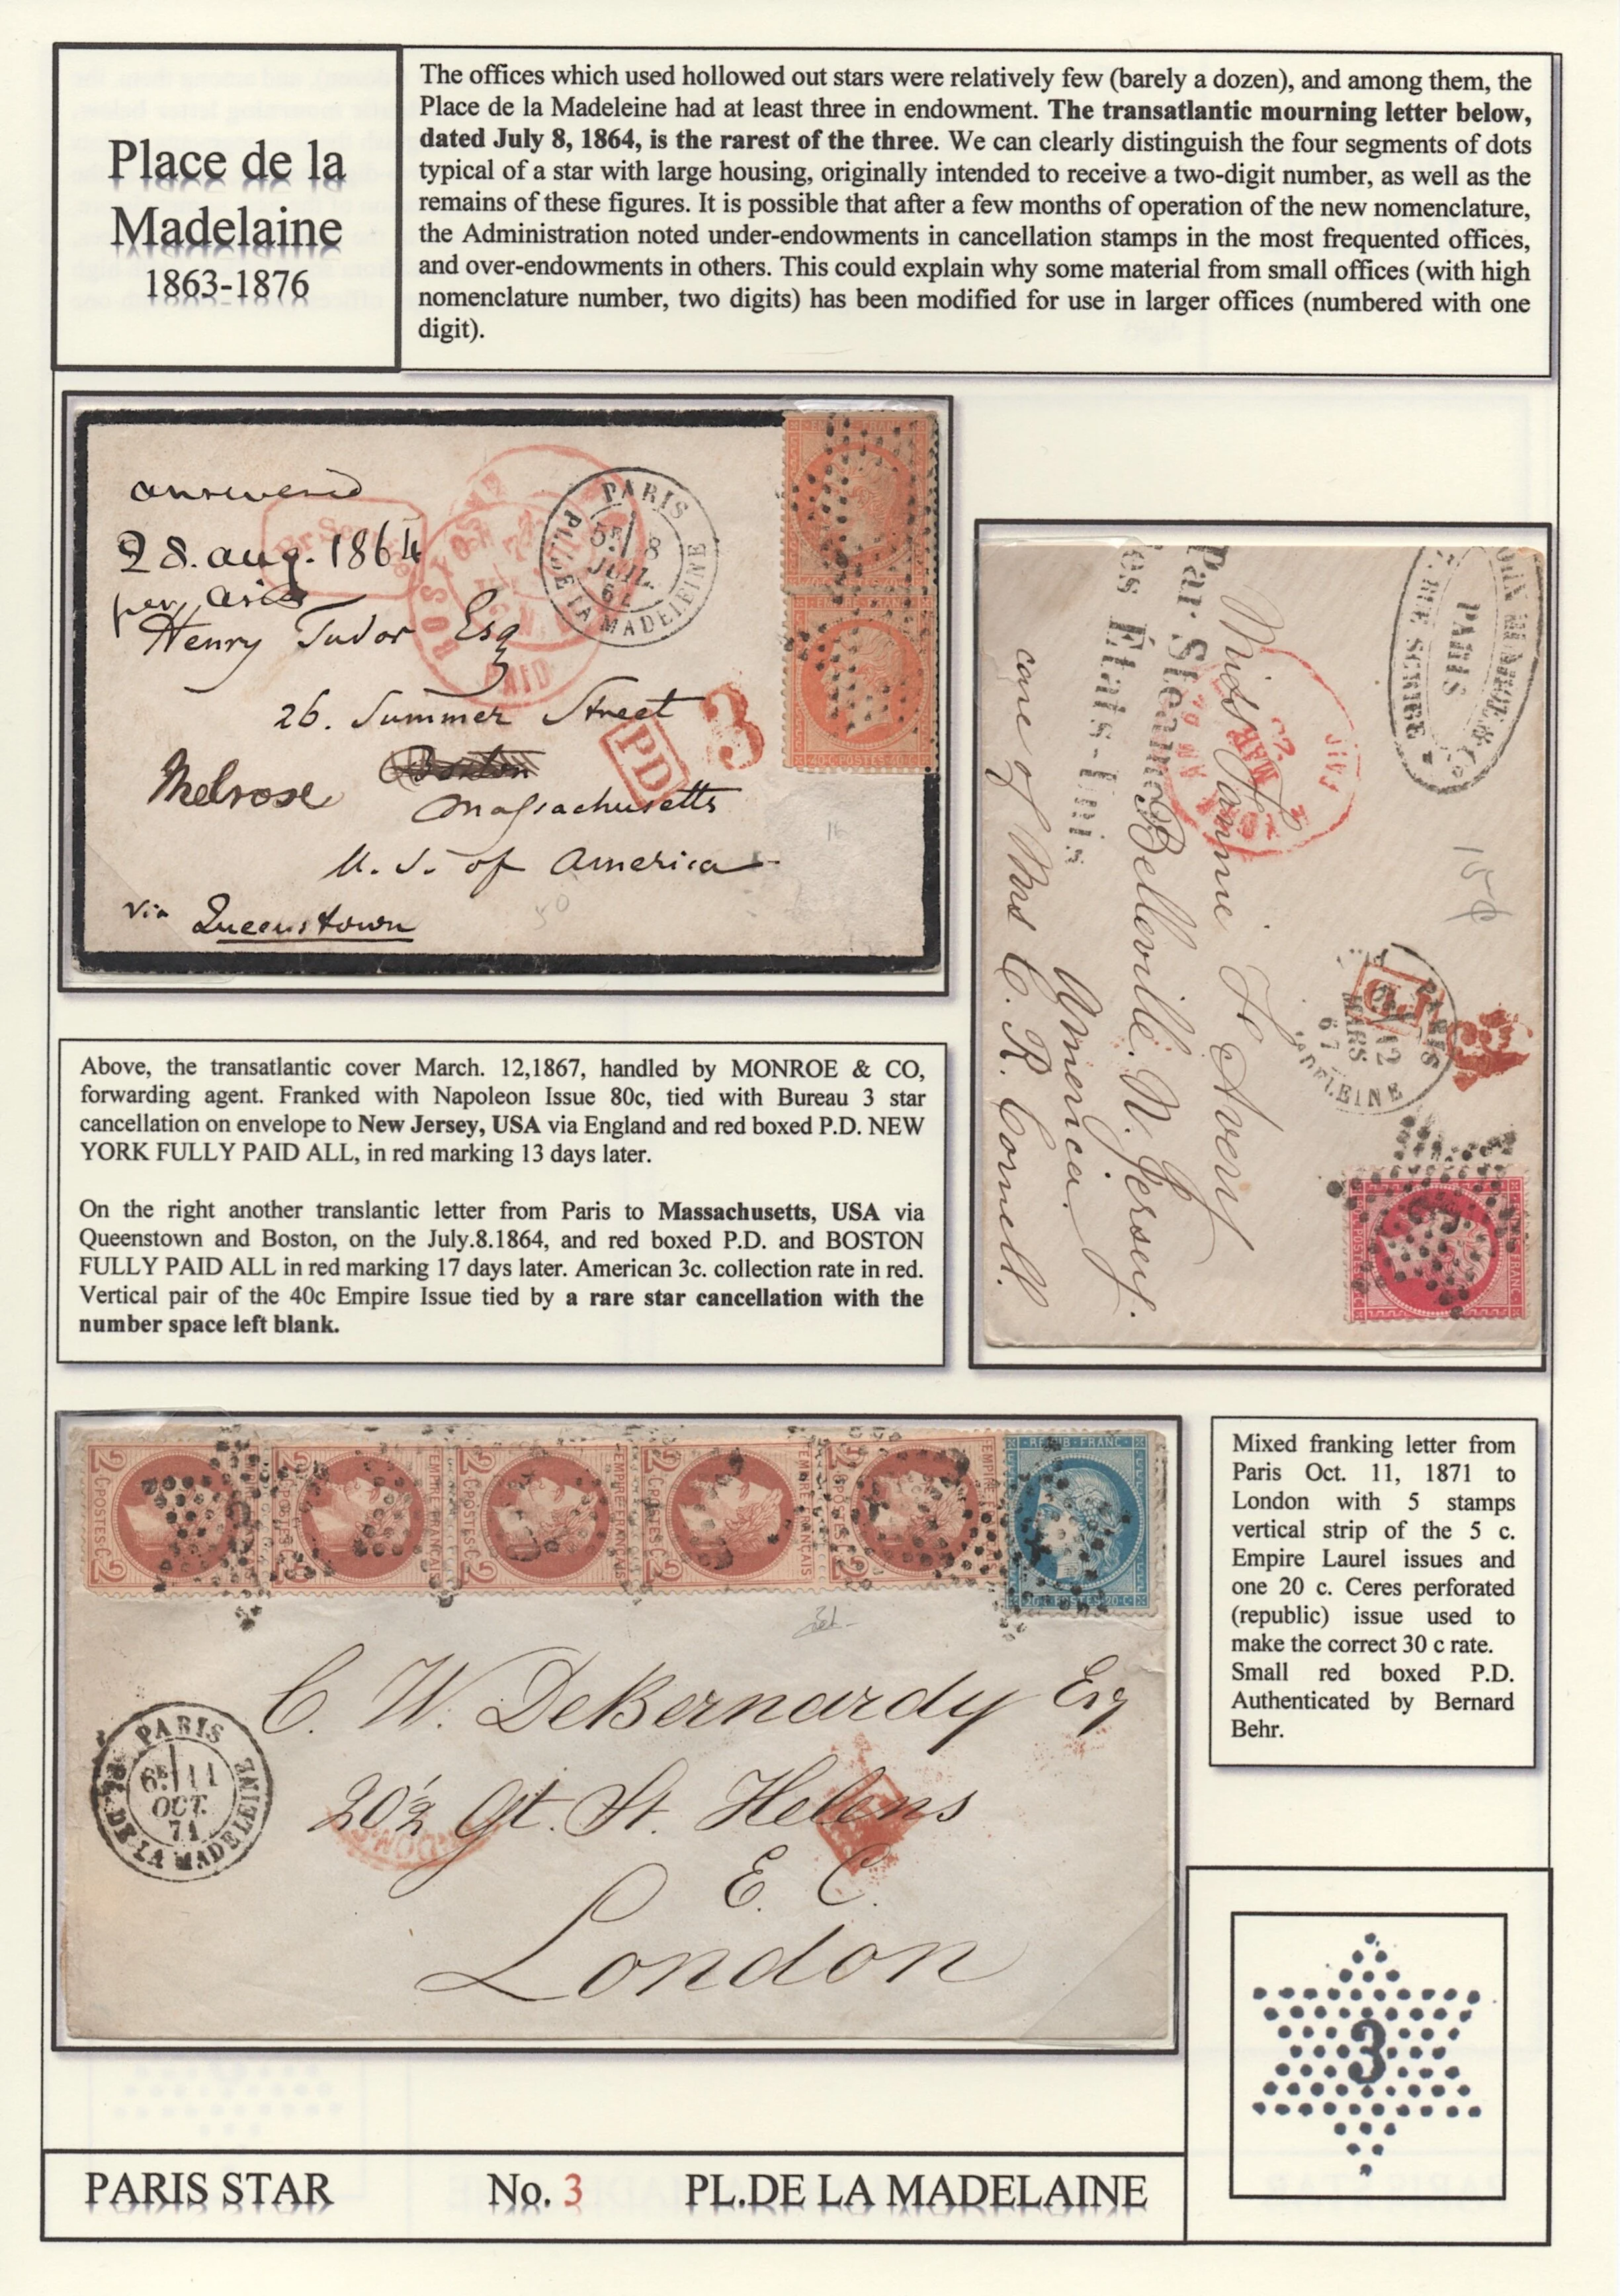 Place de la
Madelaine
1863-1876
The offices which used hollowed out stars were relatively few (barely a dozen), and among them, the
Place de la Madeleine had at least three in endowment. The transatlantic mourning letter below,
dated July 8, 1864, is the rarest of the three. We can clearly distinguish the four segments of dots
typical of a star with large housing, originally intended to receive a two-digit number, as well as the
remains of these figures. It is possible that after a few months of operation of the new nomenclature,
the Administration noted under-endowments in cancellation stamps in the most frequented offices,
and over-endowments in others. This could explain why some material from small offices (with high
nomenclature number, two digits) has been modified for use in larger offices (numbered with one
digit).
answered
28. aug. 1864
per Asia
Henry Tudor Esq
26. Summer Street
Boston
Melrose
Massachusetts
U. S. of America
via Queenstown
PARIS
PL. DE LA MADELEINE
5E 8
JUIL.
64
BOSTON
PAID
PD
3
EMPIRE FRANC
40 C POSTES 40 C
16
50
Par Steamer
des États-Unis
PARIS
Miss Fannie
Belleville. N. Jersey.
America.
care of Mrs C. R. Cornell.
PAID
PARIS
12
MARS
67
MADELEINE
Above, the transatlantic cover March. 12,1867, handled by MONROE & CO,
forwarding agent. Franked with Napoleon Issue 80c, tied with Bureau 3 star
cancellation on envelope to New Jersey, USA via England and red boxed P.D. NEW
YORK FULLY PAID ALL, in red marking 13 days later.
On the right another translantic letter from Paris to Massachusetts, USA via
Queenstown and Boston, on the July.8.1864, and red boxed P.D. and BOSTON
FULLY PAID ALL in red marking 17 days later. American 3c. collection rate in red.
Vertical pair of the 40c Empire Issue tied by a rare star cancellation with the
number space left blank.
EMPIRE FRANÇAIS
2 C·POSTES·C 2
REPUB·FRANC
20·C·POSTES·20·C
C. W. DeBernardy Esq
20½ Gt. St. Helens
E. C.
London
PARIS
PL. DE LA MADELEINE
6E 11
OCT.
71
Mixed franking letter from
Paris Oct. 11, 1871 to
London with 5 stamps
vertical strip of the 5 c.
Empire Laurel issues and
one 20 c. Ceres perforated
(republic) issue used to
make the correct 30 c rate.
Small red boxed P.D.
Authenticated by Bernard
Behr.
3
PARIS STAR No. 3 PL.DE LA MADELAINE